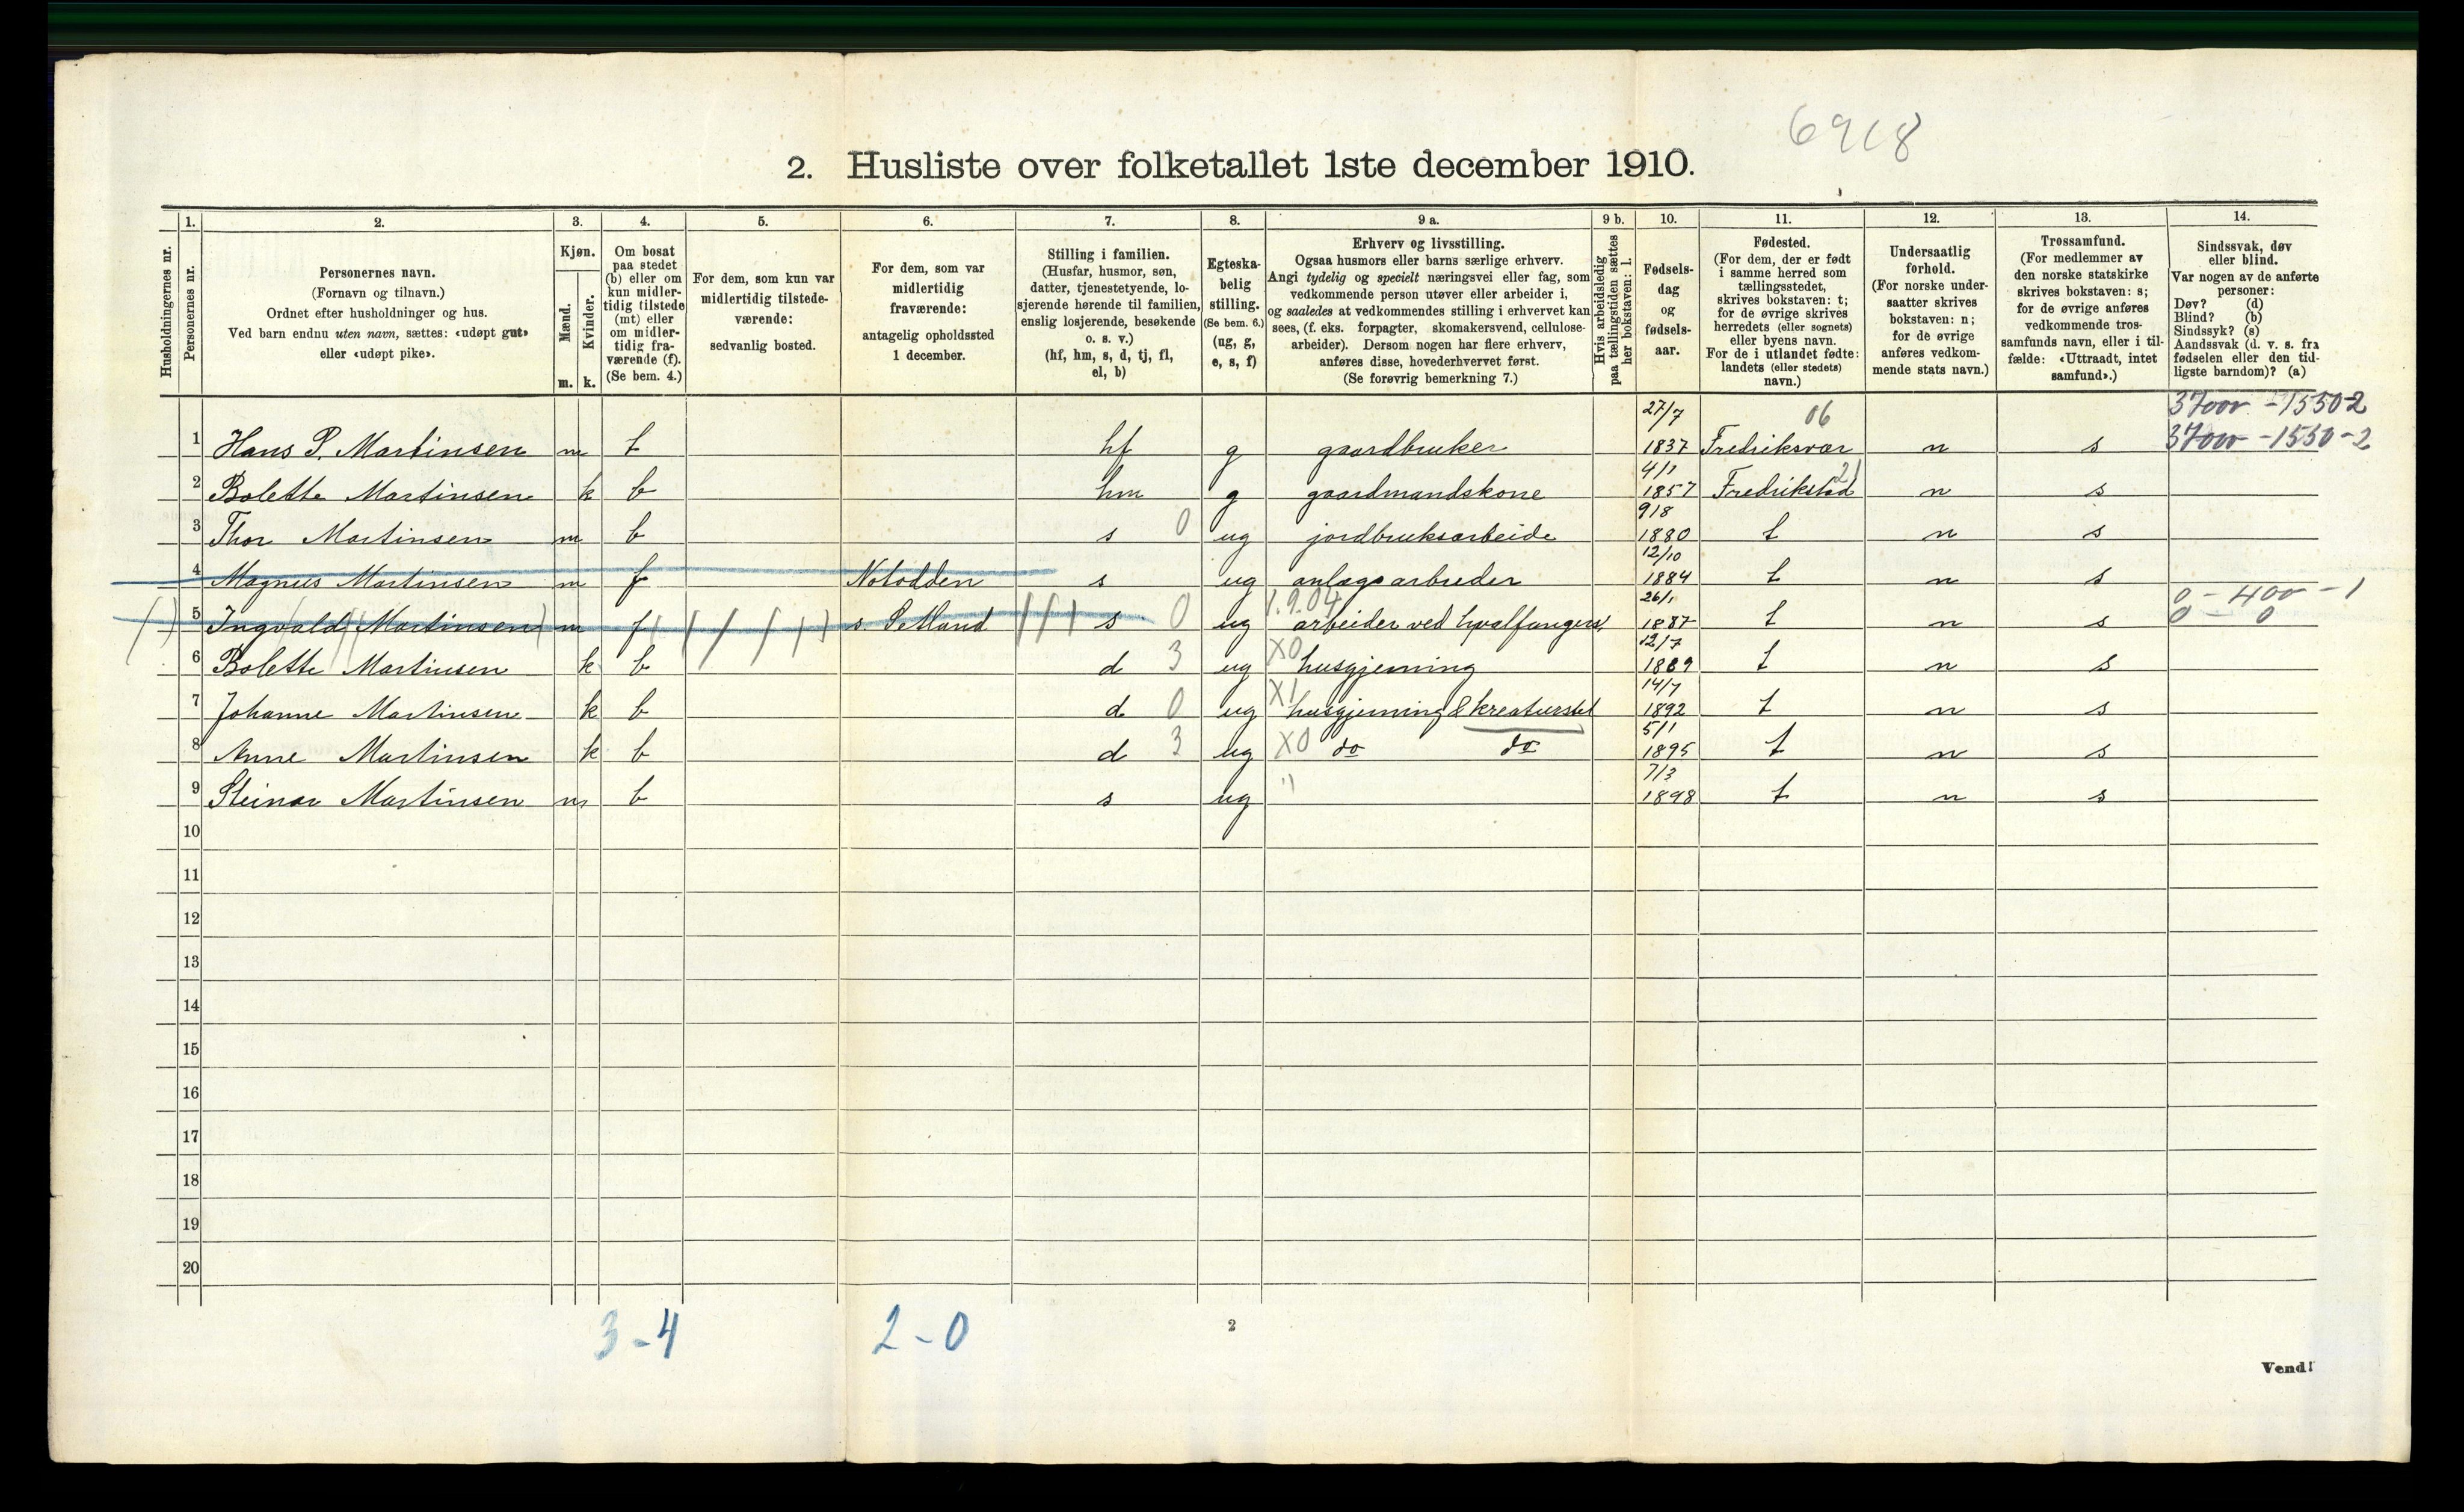 6918
2. Husliste over folketallet 1ste december 1910.
1. 2. 3. 4. 5. 6. 7. 8. 9 a. 9 b. 10. 11. 12. 13. 14.
Husholdningernes nr.
Personernes nr.
Personernes navn.
(Fornavn og tilnavn.)
Ordnet efter husholdninger og hus.
Ved barn endnu uten navn, sættes: «udøpt gut»
eller «udøpt pike».
Kjøn.
Mænd.
Kvinder.
m. k.
Om bosat
paa stedet
(b) eller om
kun midler-
tidig tilstede
(mt) eller
om midler-
tidig fra-
værende (f).
(Se bem. 4.)
For dem, som kun var
midlertidig tilstede-
værende:
sedvanlig bosted.
For dem, som var
midlertidig
fraværende:
antagelig opholdssted
1 december.
Stilling i familien.
(Husfar, husmor, søn,
datter, tjenestetyende, lo-
sjerende hørende til familien,
enslig losjerende, besøkende
o. s. v.)
(hf, hm, s, d, tj, fl,
el, b)
Egteska-
belig
stilling.
(Se bem. 6.)
(ug, g,
e, s, f)
Erhverv og livsstilling.
Ogsaa husmors eller barns særlige erhverv.
Angi tydelig og specielt næringsvei eller fag, som
vedkommende person utøver eller arbeider i,
og saaledes at vedkommendes stilling i erhvervet kan
sees, (f. eks. forpagter, skomakersvend, cellulose-
arbeider). Dersom nogen har flere erhverv,
anføres disse, hovederhvervet først.
(Se forøvrig bemerkning 7.)
Hvis arbeidsledig
paa tællingstiden sættes
her bokstaven: l.
Fødsels-
dag
og
fødsels-
aar.
Fødested.
(For dem, der er født
i samme herred som
tællingsstedet,
skrives bokstaven: t;
for de øvrige skrives
herredets (eller sognets)
eller byens navn.
For de i utlandet fødte:
landets (eller stedets)
navn.)
Undersaatlig
forhold.
(For norske under-
saatter skrives
bokstaven: n;
for de øvrige
anføres vedkom-
mende stats navn.)
Trossamfund.
(For medlemmer av
den norske statskirke
skrives bokstaven: s;
for de øvrige anføres
vedkommende tros-
samfunds navn, eller i til-
fælde: «Uttraadt, intet
samfund».)
Sindssvak, døv
eller blind.
Var nogen av de anførte
personer:
Døv? (d)
Blind? (b)
Sindssyk? (s)
Aandssvak (d. v. s. fra
fødselen eller den tid-
ligste barndom)? (a)
27/7 06 3700 - 1550-2
1 Hans P. Martinsen m b hf g gaardbruker 1837 Fredriksvær n s 3700 - 1550-2
4/1 21
2 Bolette Martinsen k b hm g gaardmandskone 1857 Fredrikstad n s
9/8
3 Thor Martinsen m b s 0 ug jordbruksarbeide 1880 t n s
12/10
4 Magnus Martinsen m f Notodden s ug anlægsarbeider 1884 t n s
1.9.04 26/1 0 - 400 - 1
5 Ingvald Martinsen m f s. Setland s 0 ug arbeider ved hvalfangers/ 1887 t n s 0 - 0
12/7
6 Bolette Martinsen k b d 3 ug X0 husgjerning 1889 t n s
14/7
7 Johanne Martinsen k b d 0 ug X1 husgjerning & kreaturstel 1892 t n s
5/1
8 Anne Martinsen k b d 3 ug X0 do do 1895 t n s
7/3
9 Steinar Martinsen m b s ug " 1898 t n s
10
11
12
13
14
15
16
17
18
19
20
3-4 2-0
2
Vend!